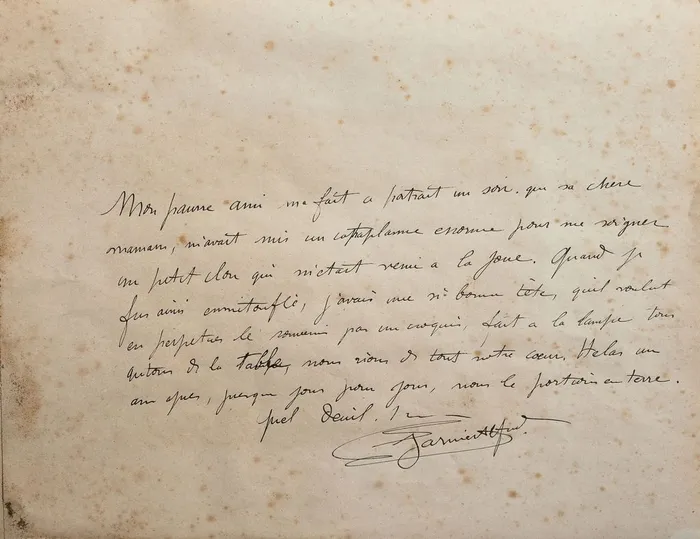 Mon pauvre ami m'a fait ce portrait un soir. que sa chere
maman, m'avait mis un cataplasme enorme pour me soigner
un petit clou qui m'etait venu a la joue. Quand je
fus ainsi emmitouflé, j'avais une si bonne tête, qu'il voulut
en perpetuer le souvenir par un croquis, fait a la lampe tous
autour de la table, nous rions de tout notre cœur. Helas un
an apres, presque jour pour jour, nous le portions en terre.
quel deuil. !
Garnier